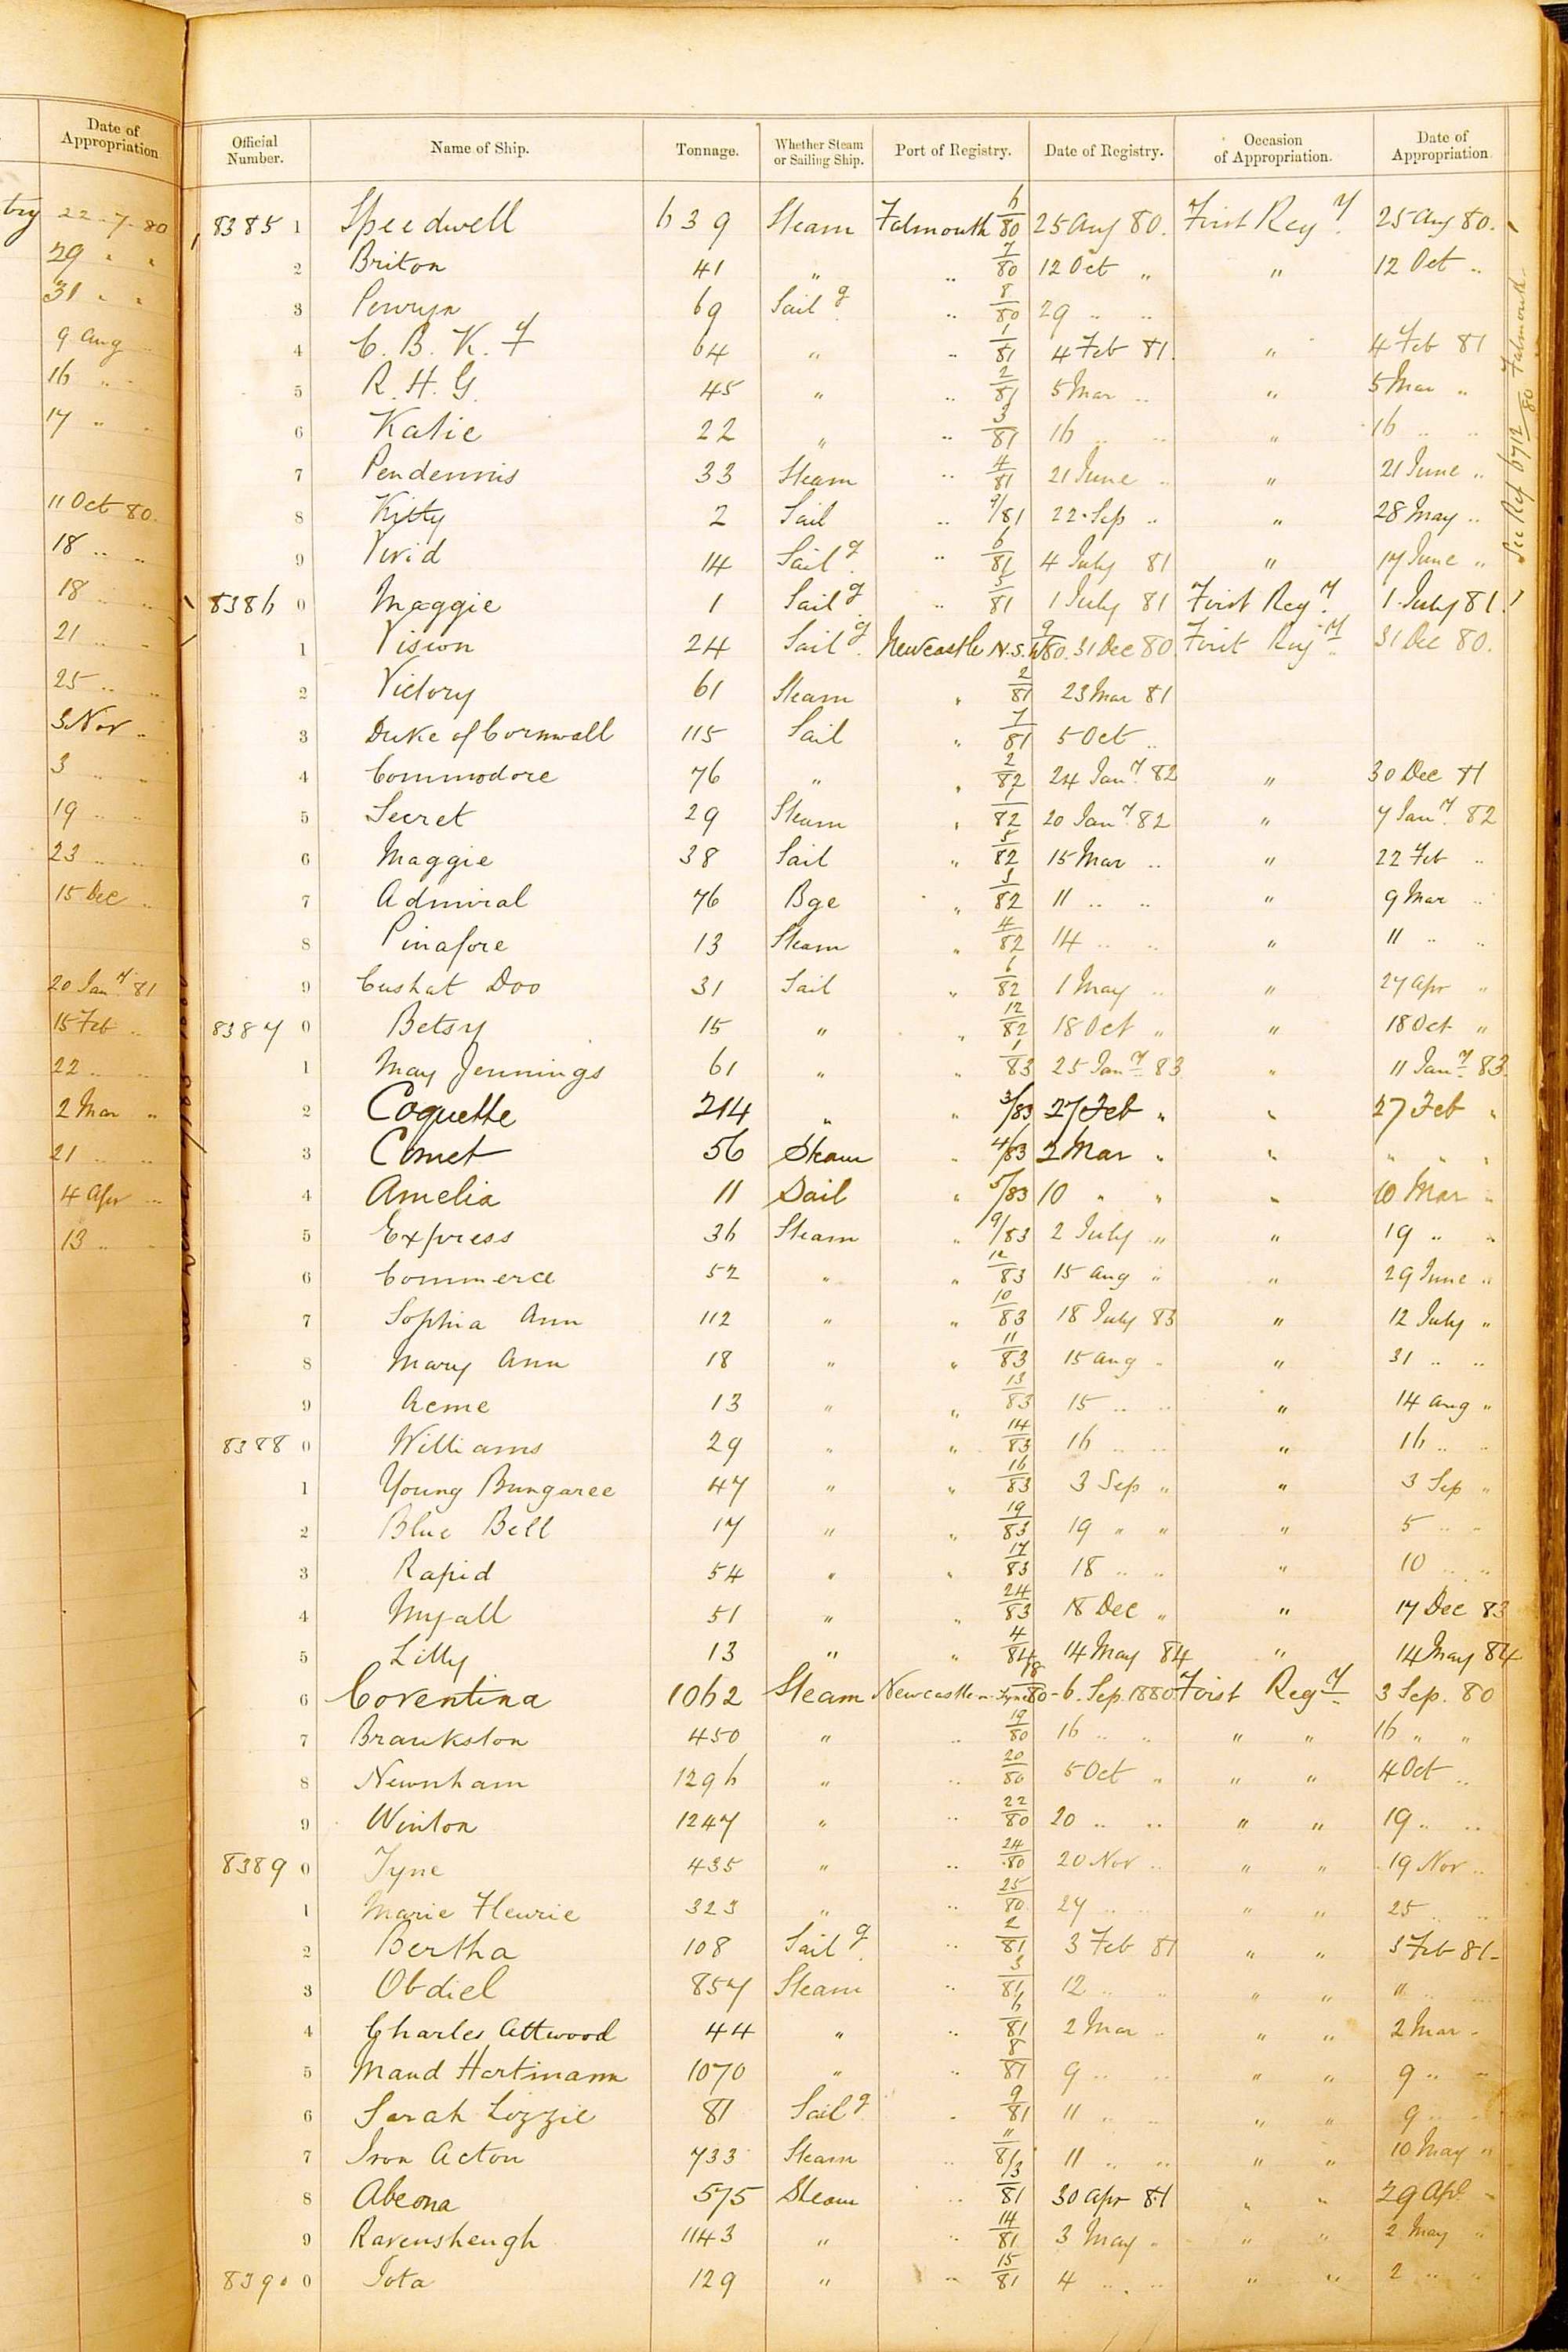 Date of
Appropriation
22-7-80
29 " "
31 " "
9 Aug "
16 " "
17 " "
11 Oct 80.
18 " "
18 " "
21 " "
25 " "
3 Nov "
3 " "
19 " "
23 " "
15 Dec "
20 Jany. 81
15 Feb "
22 " "
2 Mar "
21 " "
4 Apr "
13 " "
Official Number. Name of Ship. Tonnage. Whether Steam or Sailing Ship. Port of Registry. Date of Registry. Occasion of Appropriation. Date of Appropriation
8385 1 Speedwell 639 Steam Falmouth 6/80 25 Aug 80. First Regy. 25 Aug 80.
2 Briton 41 " " 7/80 12 Oct " " 12 Oct "
3 Penryn 69 Sailg " 8/80 29 " "
4 C. B. K. F 64 " " 1/81 4 Feb 81. " 4 Feb 81
5 R. H. G. 45 " " 2/81 5 Mar " " 5 Mar "
6 Katie 22 " " 3/81 16 " " " 16 " "
7 Pendennis 33 Steam " 4/81 21 June " " 21 June "
8 Kitty 2 Sail " 9/81 22 Sep " " 28 May "
9 Vivid 14 Sailg. " 6/81 4 July 81 " 17 June "
8386 0 Maggie 1 Sailg " 5/81 1 July 81 First Regy. 1 July 81.
1 Vision 24 Sailg. Newcastle N.S.W 9/80. 31 Dec 80 First Regy. 31 Dec 80.
2 Victory 61 Steam " 2/81 23 Mar 81
3 Duke of Cornwall 115 Sail " 7/81 5 Oct "
4 Commodore 76 " " 2/82 24 Jany. 82 " 30 Dec 81
5 Secret 29 Steam " 1/82 20 Jany. 82 " 7 Jany. 82
6 Maggie 38 Sail " 5/82 15 Mar " " 22 Feb "
7 Admiral 76 Bge " 3/82 11 " " " 9 Mar "
8 Pinafore 13 Steam " 4/82 14 " " " 11 " "
9 Cushat Doo 31 Sail " 6/82 1 May " " 27 Apr "
8387 0 Betsy 15 " " 12/82 18 Oct " " 18 Oct "
1 May Jennings 61 " " 1/83 25 Jany. 83 " 11 Jany. 83.
2 Coquette 214 " " 3/83 27 Feb " " 27 Feb "
3 Comet 56 Steam " 4/83 2 Mar " " " " "
4 Amelia 11 Sail " 5/83 10 " " " 10 Mar "
5 Express 36 Steam " 9/83 2 July " " 19 " "
6 Commerce 52 " " 12/83 15 Aug " " 29 June "
7 Sophia Ann 112 " " 10/83 18 July 83 " 12 July "
8 Mary Ann 18 " " 11/83 15 Aug " " 31 " "
9 Acme 13 " " 13/83 15 " " " 14 Aug "
8388 0 Williams 29 " " 14/83 16 " " " 16 " "
1 Young Bungaree 47 " " 16/83 3 Sep " " 3 Sep "
2 Blue Bell 17 " " 19/83 19 " " " 5 " "
3 Rapid 54 " " 17/83 18 " " " 10 " "
4 Myall 51 " " 24/83 18 Dec " " 17 Dec 83
5 Lilly 13 " " 4/84 14 May 84 " 14 May 84
6 Coventina 1062 Steam Newcastle n. Tyne 18/80 - 6. Sep. 1880 First Regy. 3 Sep. 80
7 Brankston 450 " " 19/80 16 " " " " 16 " "
8 Newnham 1296 " " 20/80 5 Oct " " " 4 Oct "
9 Winton 1247 " " 22/80 20 " " " " 19 " "
8389 0 Tyne 435 " " 24/80 20 Nov " " " 19 Nov "
1 Marie Fleurie 323 " " 25/80 27 " " " " 25 " "
2 Bertha 108 Sailg. " 2/81 3 Feb 81 " " 3 Feb 81-
3 Obdiel 857 Steam " 3/81 12 " " " " 11 " "
4 Charles Attwood 44 " " 6/81 2 Mar " " " 2 Mar "
5 Maud Hartmann 1070 " " 8/81 9 " " " " 9 " "
6 Sarah Lizzie 81 Sailg. " 9/81 11 " " " " 9 " "
7 Iron Acton 733 Steam " 11/81 11 " " " " 10 May "
8 Abeona 575 Steam " 13/81 30 Apr 81 " " 29 Apl. "
9 Ravensheugh 1143 " " 14/81 3 May " " " 2 May "
8390 0 Iota 129 " " 15/81 4 " " " " 2 " "
See Ref 6712/80 Falmouth